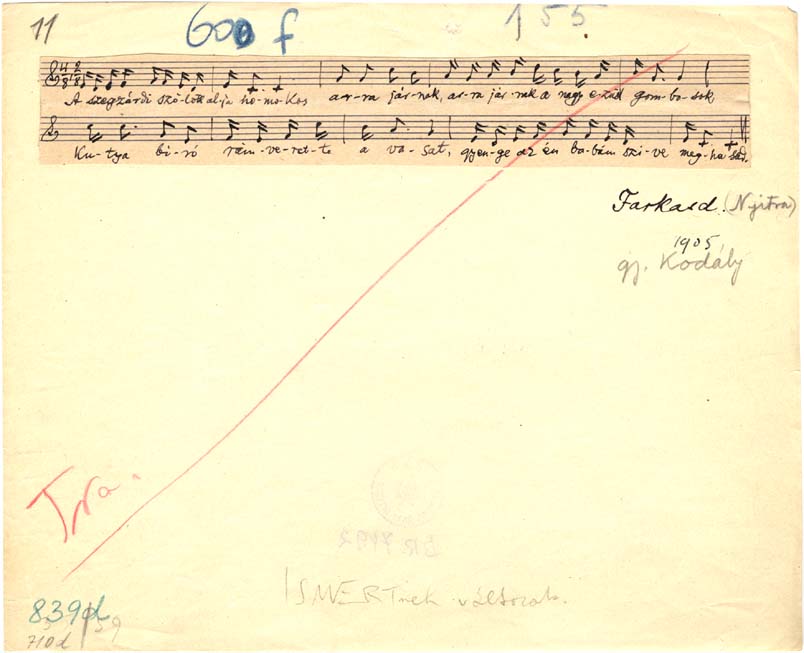 11
600 f
155
A szegzárdi szö-lök al-ja ho-mo-kos ar-ra jár-nak, ar-ra jár-nak a nagy e-züst gom-bo-sok
Ku-tya bi-ró rám-ve-ret-te a va-sat, gyen-ge az én ba-bám szi-ve meg-ha-sad.
Farkasd. (Nyitra)
1905
gy. Kodály
Tra.
BR 7192
ISMERTnek
839d
710d